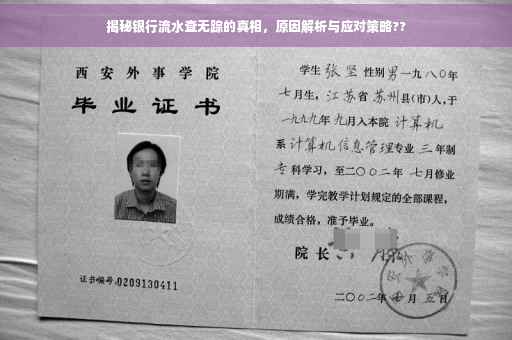 揭秘银行流水查无踪的真相，原因解析与应对策略??
西安外事学院
毕业证书
证书编号:0209130411
学生 张坚 性别 男 一九八〇年
七月生，江苏省 苏州县(市)人，于
一九九九年 九月入本院 计算机
系 计算机信息管理专业 三 年制
专 科学习，至二〇〇二年 七月修业
期满，学完教学计划规定的全部课程，
成绩合格，准予毕业。
院长
二〇〇二年 月 五日